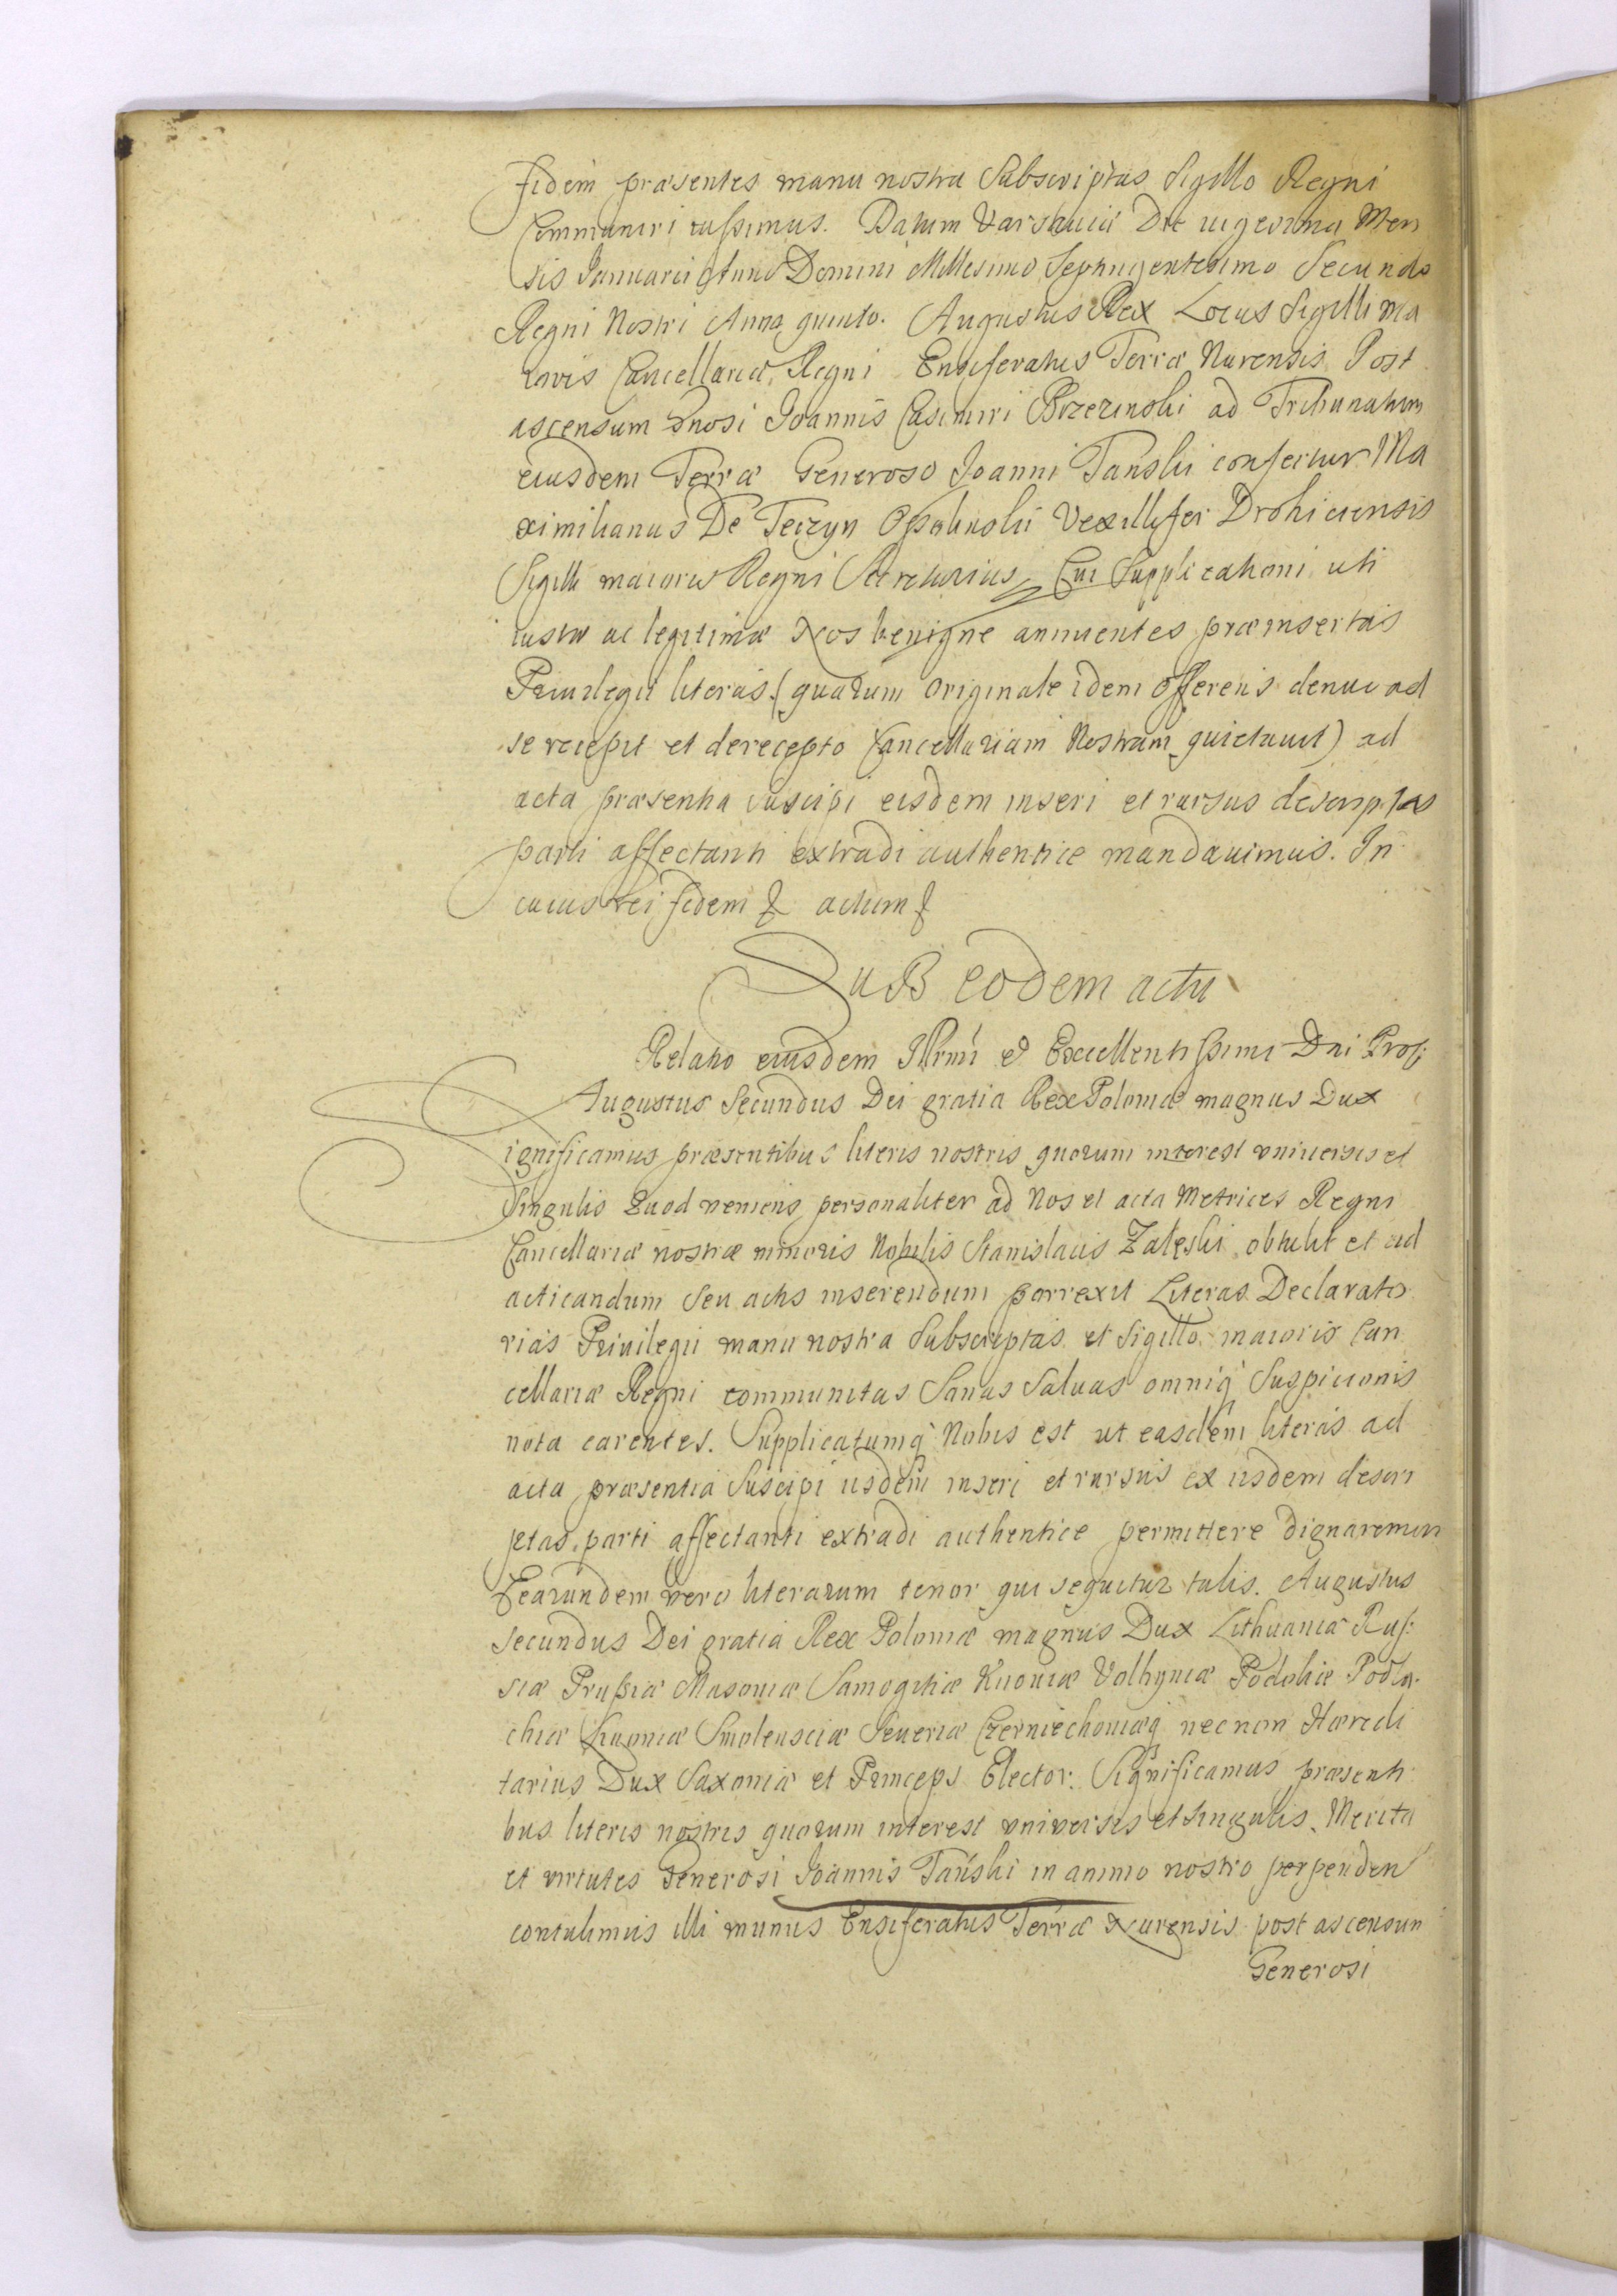 fidem præsentes manu nostra Subscriptas Sigillo Regni
Communiri iussimus. Datum Varsauiæ Die uigesima Men
sis Ianuarii Anno Domini Millesimo Septingentesimo Secundo
Regni Nostri Anno quinto. Augustus Rex Locus Sigilli Ma
ioris Cancellariæ Regni Ensiferatus Terræ Nurensis Post
ascensum Gnosi Ioannis Casimiri Brzezinski ad Tribunatum
eiusdem Terræ Generoso Ioanni Tański confertur Ma
ximilianus De Teczyn Ossolinski Vexillifer Drohiciensis
Sigilli maioris Regni Secretarius Cui Supplicationi uti
iustæ ac legitimæ Nos benigne annuentes præinsertas
Priuilegii literas (quarum Originale idem Offerens denuo ad
se recepit et de recepto Cancellariam Nostram quietauit) ad
acta præsentia suscipi eisdem inseri et rursus descriptas
parti affectanti extradi authentice mandauimus. In
cuius rei fidem & actum &
SuB eodem actu
Relatio eiusdem Illrmi et Excellentissimi Dni Proc:
Augustus Secundus Dei gratia Rex Poloniæ magnus Dux
Significamus præsentibus literis nostris quorum interest vniuersis et
Singulis Quod veniens personaliter ad Nos et acta Metrices Regni
Cancellariæ nostræ minoris Nobilis Stanislaus Zaleski obtulit et ad
acticandum Seu actis inserendum porrexit Literas Declarato
rias Priuilegii manu nostra Subscriptas et Sigillo maioris Can
cellariæ Regni communitas Sanas Saluas omniq Suspicionis
nota carentes. Supplicatumq Nobis est ut easdem literas ad
acta præsentia Suscipi iisdem inseri et rursus ex iisdem descri
ptas parti affectanti extradi authentice permittere dignaremur
Quarundem vero literarum tenor qui sequitur talis. Augustus
Secundus Dei gratia Rex Poloniæ magnus Dux Lithuaniæ Rus:
siæ Prussiæ Masouiæ Samogitiæ Kiiouiæ Volhyniæ Podoliæ Podla
chiæ Liuoniæ Smolensciæ Seueriæ Czerniechouiæq necnon Hæredi
tarius Dux Saxoniæ et Princeps Elector. Significamus præsenti
bus literis nostris quorum interest vniversis et singulis. Merita
et virtutes Generosi Ioannis Tański in animo nostro perpenden
contulimus illi munus Ensiferatus Terræ Nurensis post ascensum
Generosi